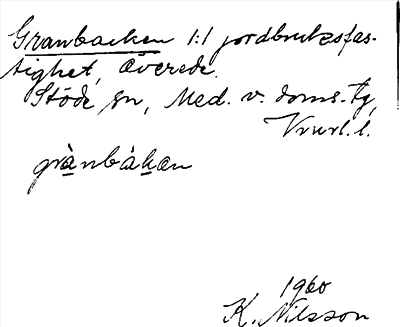 Granbacken 1:1 jordbruksfas-
tighet, Överede.
Stöde sn, Med. v. doms. tg,
Vnrl. l.
grànbákæn
1960
K. Nilsson